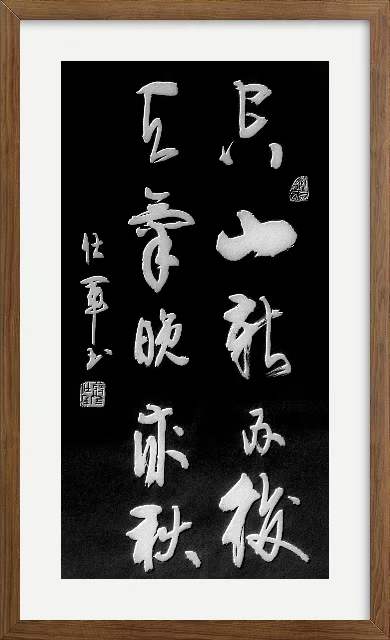 空山新雨後
天氣晚來秋
仕軍书